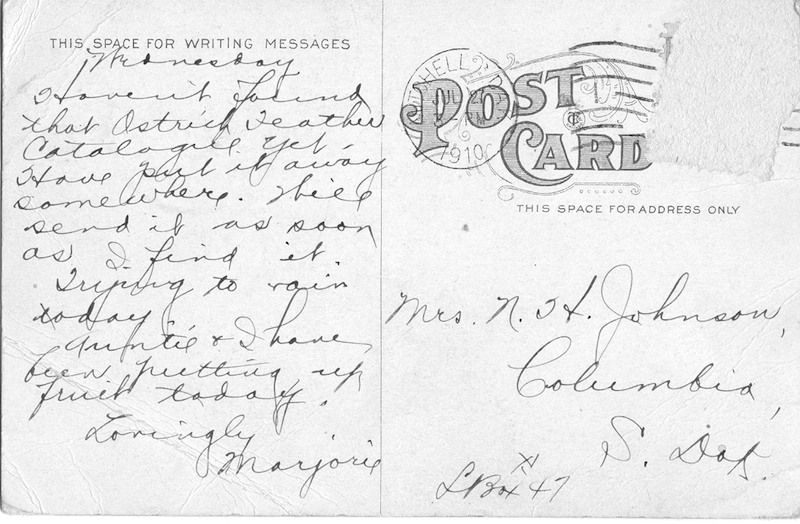 THIS SPACE FOR WRITING MESSAGES
Wednesday
Haven't found
that Ostrich Feather
Catalogue yet.
Have put it away
somewhere. Will
send it as soon
as I find it.
Trying to rain
today
Auntie & I have
been putting up
fruit today.
Lovingly
Marjorie
POST
CARD
1910
THIS SPACE FOR ADDRESS ONLY
Mrs. N. H. Johnson,
Columbia,
S. Dak.
L Box 47